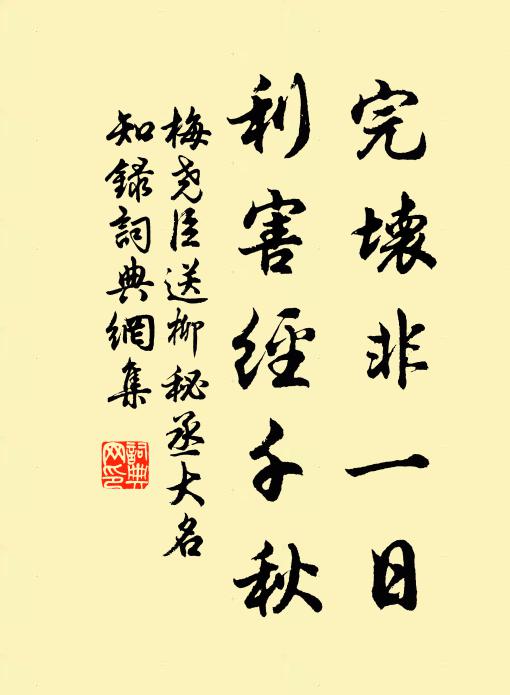 完壞非一日
利害經千秋
梅堯臣送柳秘丞大名
知錄詞典網集
詞典網印